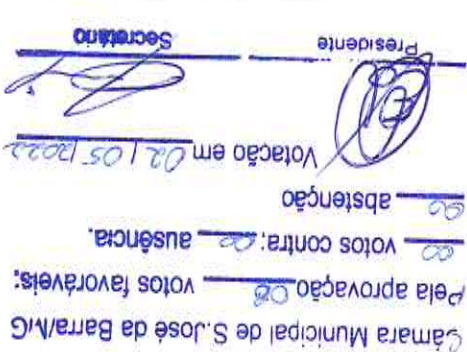 Câmara Municipal de S.José da Barra/MG
Pela aprovação 08 votos favoráveis;
00 votos contra; 00 ausência.
00 abstenção
Votação em 02 / 05 / 2022
Presidente Secretário